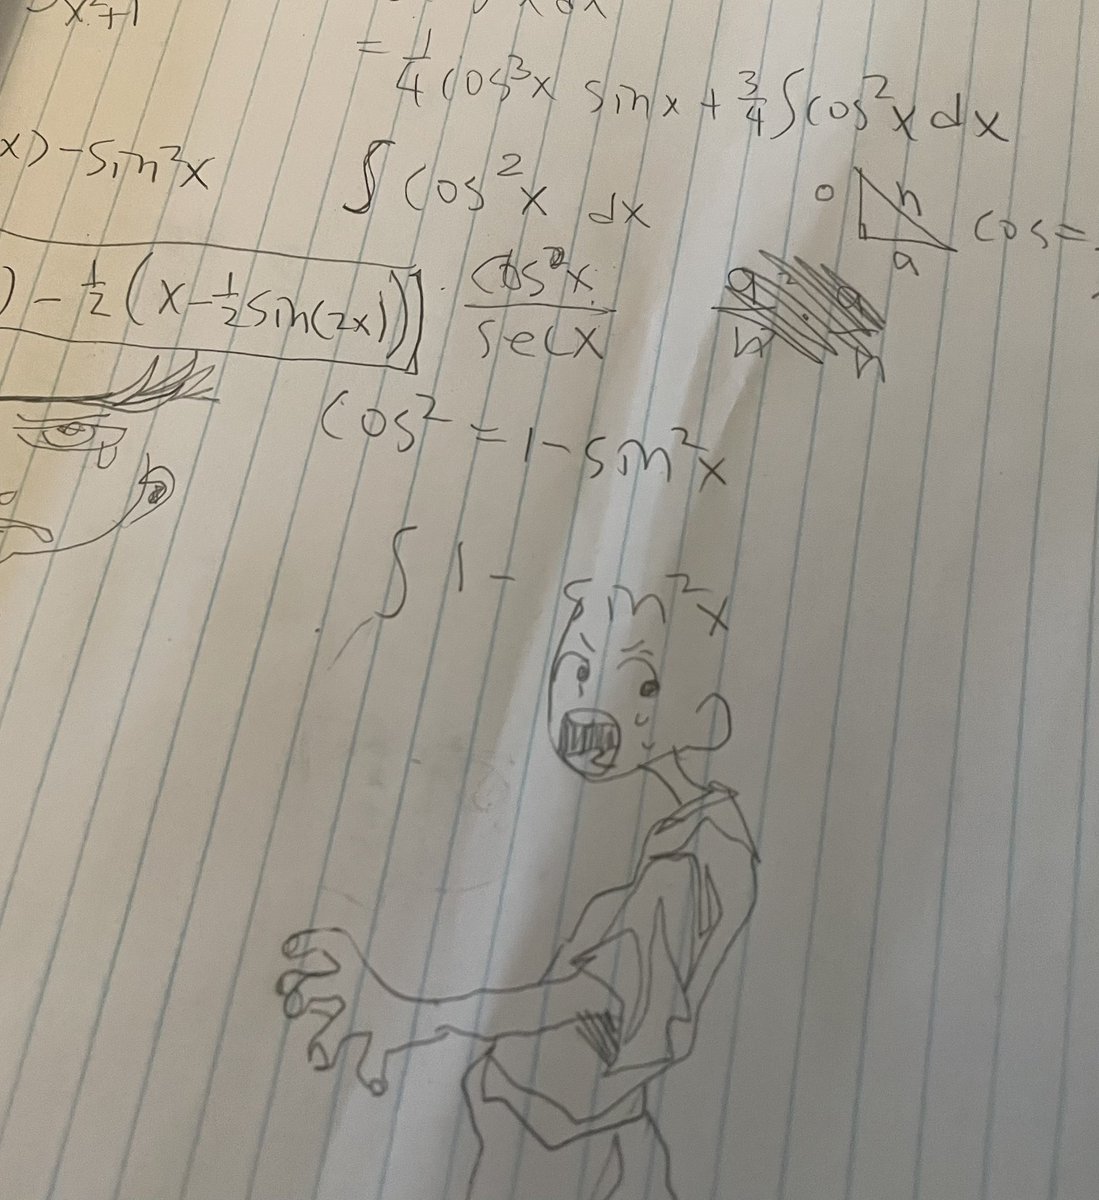 x²+1
x dx
= 1/4 cos³x sinx + 3/4 ∫cos²x dx
x) - sin²x
∫ cos²x dx
o h a cos =
) - 1/2 (x - 1/2 sin(2x))]
cos²x / secx
cos² = 1 - sin²x
∫ 1 - sin²x